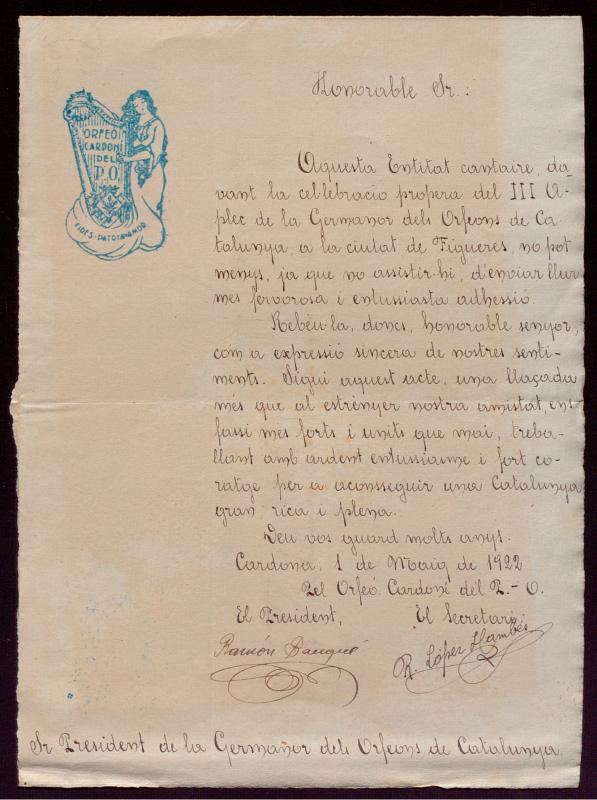 ORFEÓ
CARDONÍ
DEL
P.O.
FIDES-PATRIA-AMOR
Honorable Sr.:
Aquesta Entitat cantaire, da-
vant la cel·lebracio propera del III A-
plec de la Germanor dels Orfeons de Ca-
talunya, a la ciutat de Figueres, no pot
menys, ja que no assistir-hi, d'enviar llur
mes fervorosa i entussiasta adhessio.
Rebeu-la, doncs, honorable senyor,
com a expressió sincera de nostres senti-
ments. Sigui aquest acte, una llaçada
més que al estrenyer nostra amistat, ens
fassi mes forts i units que mai, treba-
llant amb ardent entussiasme i fort co-
ratge per a aconseguir una Catalunya
gran, rica i plena.
Deu vos guard molts anys.
Cardona, 1 de Maig de 1922
Pel Orfeó Cardoní del P.-O.
El President, El Secretari
Ramón R. López Llambés
Sr President de la Germanor dels Orfeons de Catalunya.